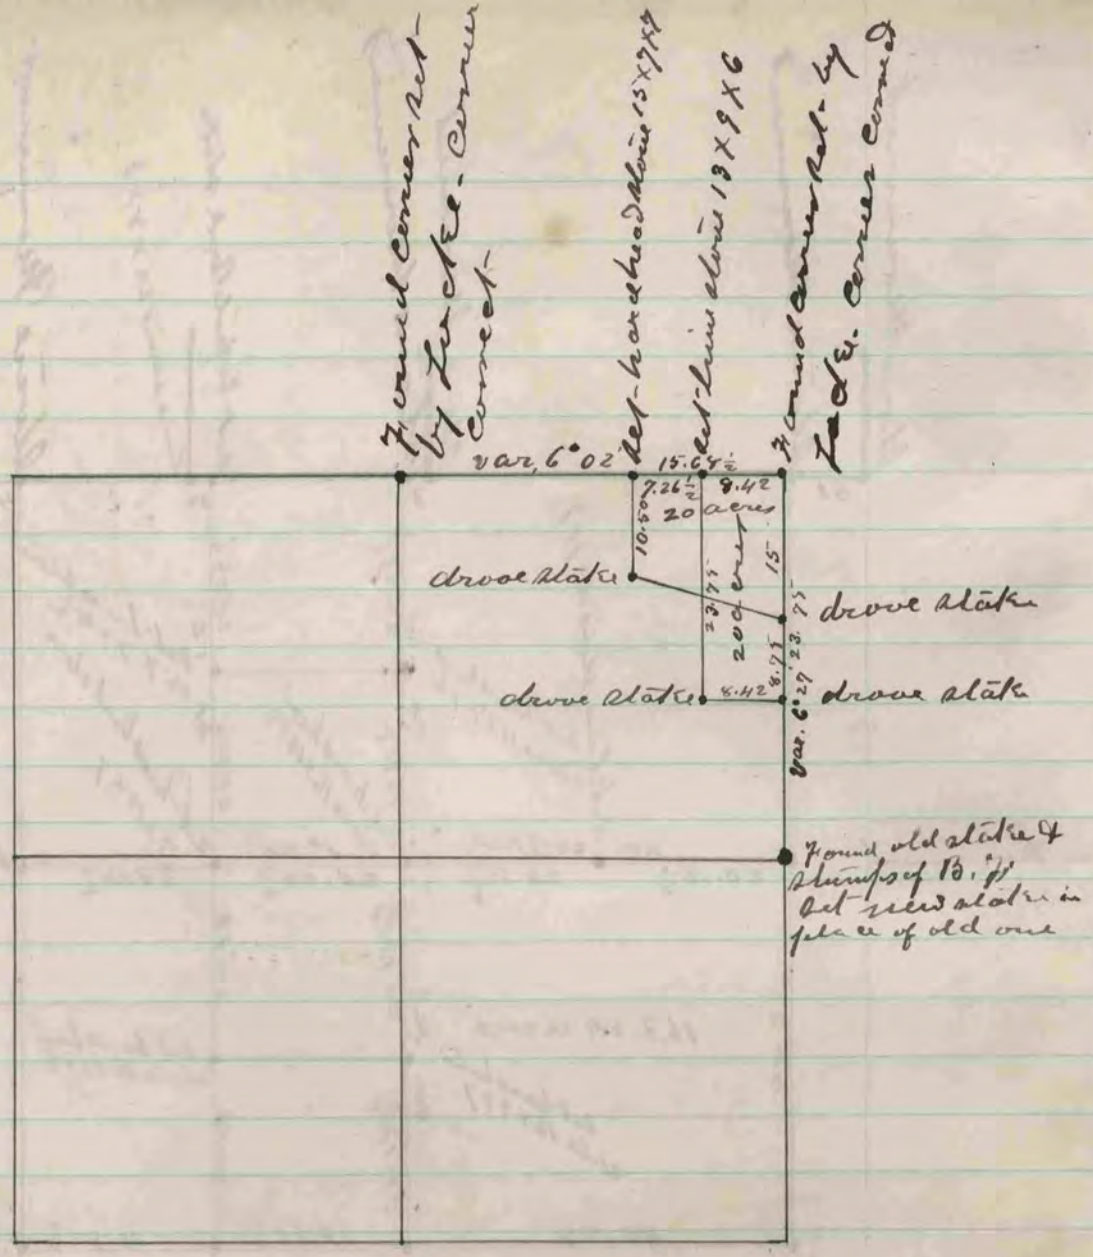 Found corner set
by Luckee - Corner
Correct
Set hardhead stone 15 X 9 X 7
Set lime stone 13 X 9 X 6
Found corner set by
corner correct
var, 6° 02'
15.68 1/2
7.26 1/2
8.42
20 acres
10.50
15
23.75
20 acres
drove stake
drove stake
8.75
23.75
drove stake
8.42
drove stake
var. 6° 27'
Found old stake &
stumps of B. Ts
set new stake in
place of old one